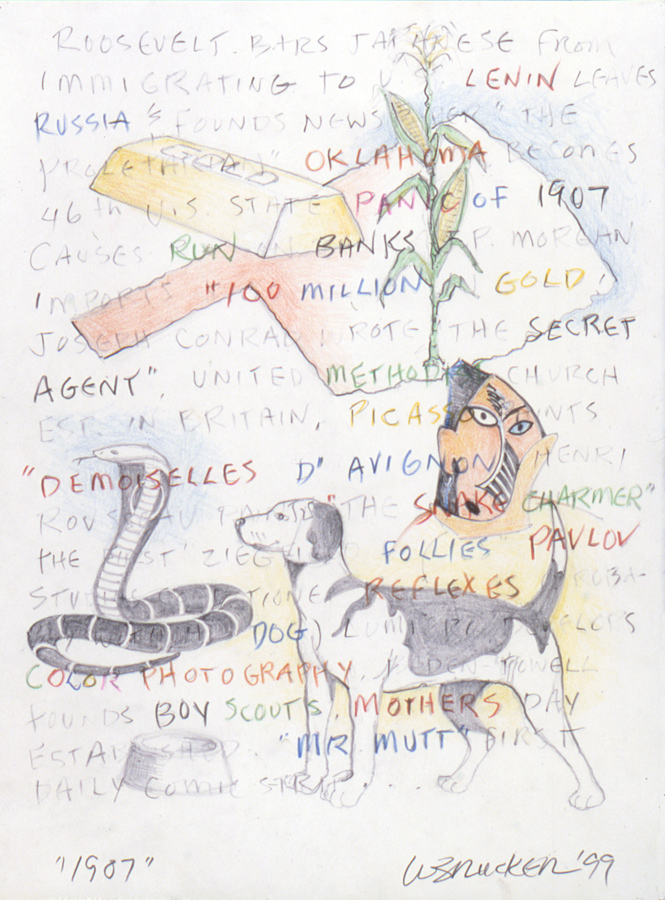 ROOSEVELT BARS JAPANESE FROM
IMMIGRATING TO U.S. LENIN LEAVES
RUSSIA & FOUNDS NEWSPAPER "THE
PROLETARIAN" OKLAHOMA BECOMES
46th U.S. STATE PANIC OF 1907
CAUSES RUN ON BANKS J.P. MORGAN
IMPORTS "100 MILLION IN GOLD,
JOSEPH CONRAD WROTE "THE SECRET
AGENT", UNITED METHODIST CHURCH
EST. IN BRITAIN, PICASSO PAINTS
"DEMOISELLES D'AVIGNON HENRI
ROUSSEAU PAINTS "THE SNAKE CHARMER"
THE FIRST ZIEGFELD FOLLIES PAVLOV
STUDIES CONDITIONED REFLEXES
DOG) LUMIERE DEVELOPS
COLOR PHOTOGRAPHY, BADEN-POWELL
FOUNDS BOY SCOUTS, MOTHERS DAY
ESTABLISHED. "MR. MUTT" FIRST
DAILY COMIC STRIP
"1907" '99